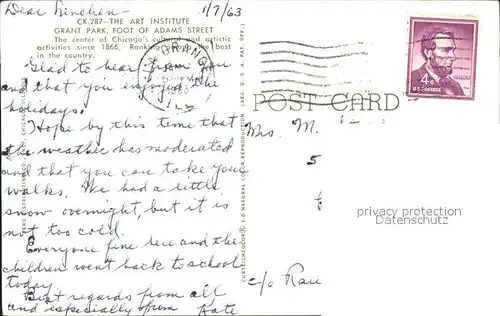 Dear Lenchen - 1/7/63
CK.287-THE ART INSTITUTE
GRANT PARK, FOOT OF ADAMS STREET
The center of Chicago's cultural and artistic
activities since 1866, Ranking the best
in the country.
Glad to hear from you
and that you enjoyed the
holidays.
Hope by this time that
the weather has moderated
and that you can take your
walks. We had a little
snow overnight, but it is
not too cold.
Everyone fine here and the
children went back to school
today.
Best regards from all
and especially from Kate
LA GRANGE
ILL
POST CARD
4¢
U.S. POSTAGE
Mrs. M.
5
c/o Rau
privacy protection
watermark
CURTEICHCOLOR 3-D NATURAL COLOR REPRODUCTION (REG. U.S.A. PAT. OFF.)